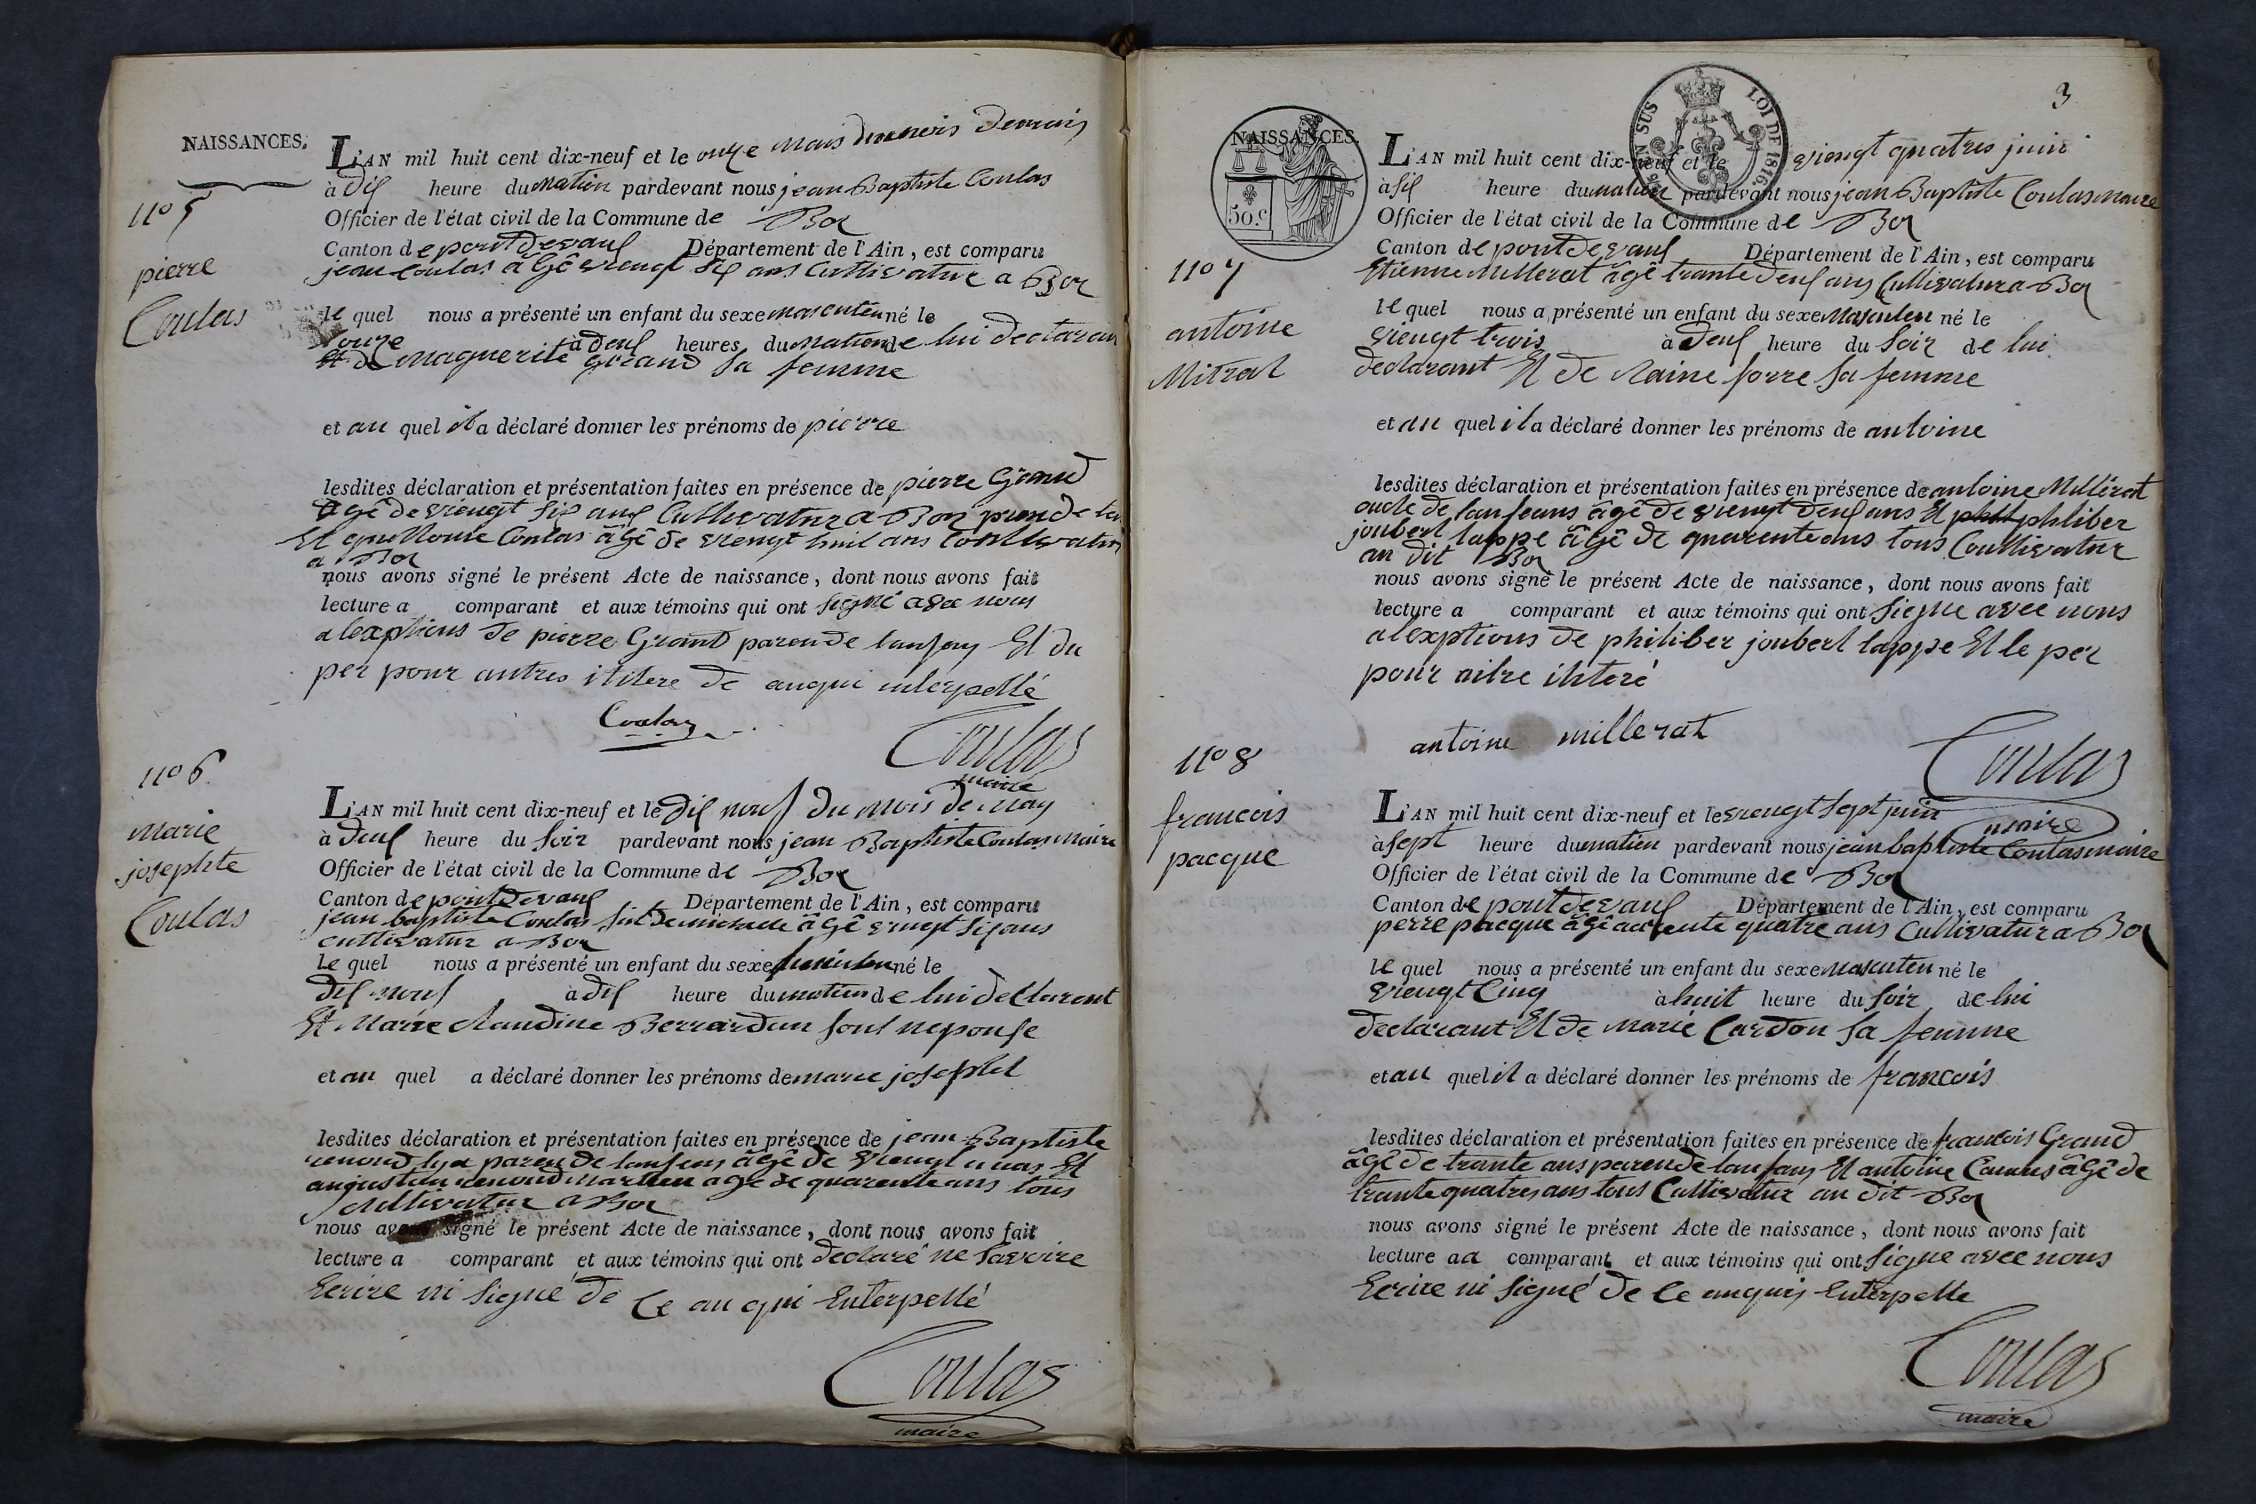 NAISSANCES.
n° 5
pierre
Coulas
L'AN mil huit cent dix-neuf et le onze mars
à dix heure du matien pardevant nous jean Baptiste Coulas
Officier de l'état civil de la Commune de Boz
Canton de pont devaux Département de l'Ain, est comparu
jean Coulas âgé viengt six ans Cultivature a Boz
le quel nous a présenté un enfant du sexe masculen né le
onze à deux heures du matien de lui declarant
Et de Maguerite Grand sa femme
et au quel il a déclaré donner les prénoms de pierre
lesdites déclaration et présentation faites en présence de pierre Grand
âgé de viengt six ans Cultivatur a Boz
Et Coulas âgé de viengt huit ans
a Boz
nous avons signé le présent Acte de naissance, dont nous avons fait
lecture a comparant et aux témoins qui ont signé avec nous
alexptions de pierre Grand paren de lanfan Et du
per pour autres ititere de auqui interpellé
Coulas
Coulas
maire
n° 6
marie
josephte
Coulas
L'AN mil huit cent dix-neuf et le dix neuf du mois de may
à deux heure du soir pardevant nous jean Baptiste Coulas maire
Officier de l'état civil de la Commune de Boz
Canton de pont devaux Département de l'Ain, est comparu
jean baptiste Coulas âgé vingt six ans
cultivatur a Boz
Le quel nous a présenté un enfant du sexe né le
dix neuf à dix heure du matien de lui declarent
Et Marie Claudine Berrardan sont neponse
et au quel a déclaré donner les prénoms de marie josephte
lesdites déclaration et présentation faites en présence de jean Baptiste
renoud paren de lanfan âgé de Et
augustin renoud age de quarente ans tous
Cultivatur a Boz
nous avons signé le présent Acte de naissance, dont nous avons fait
lecture a comparant et aux témoins qui ont declaré ne savoire
Ecrire ni signé de Ce au qui Enterpellé
Coulas
maire
3
TIMB. EN SUS LOI DE 1816.
NAISSANCES.
50.c
n° 7
antoine
Milrat
L'AN mil huit cent dix-neuf et le viengt quatres juin
à six heure du matien pardevant nous jean Baptiste Coulas maire
Officier de l'état civil de la Commune de Boz
Canton de pont devaux Département de l'Ain, est comparu
Etienne Millerat âgé trante deux ans Cullivatur a Boz
le quel nous a présenté un enfant du sexe masculen né le
viengt trois à deux heure du soir de lui
declarant Et de Claine forre sa femme
et au quel il a déclaré donner les prénoms de antoine
lesdites déclaration et présentation faites en présence de antoine Millérat
oncle de lanfans âgé de viengt deux ans Et phliber
joubert lappe âgé de quarente ans tous Coultivatur
au dit Boz
nous avons signé le présent Acte de naissance, dont nous avons fait
lecture a comparant et aux témoins qui ont signe avec nous
alexptions de philiber joubert lappe Et le per
pour aitre ihteré
antoine millerat
Coulas
maire
n° 8
francois
pacque
L'AN mil huit cent dix-neuf et le viengt sept juin
à sept heure du matien pardevant nous jean baptiste Coulas maire
Officier de l'état civil de la Commune de Boz
Canton de pont devaux Département de l'Ain, est comparu
perre pacque âgé quatre ans Cullivatur a Boz
le quel nous a présenté un enfant du sexe masculen né le
viengt Cinq à huit heure du soir de lui
declarant Et de marie Cardon sa femme
et au quel il a déclaré donner les prénoms de francois
lesdites déclaration et présentation faites en présence de francois Grand
âgé de trante ans paren de lanfans Et antoine Camus âgé de
trante quatres ans tous Cultivatur au dit Boz
nous avons signé le présent Acte de naissance, dont nous avons fait
lecture aa comparant et aux témoins qui ont signe avec nous
Ecrire ni signé de Ce auquis Enterpelle
Coulas
maire